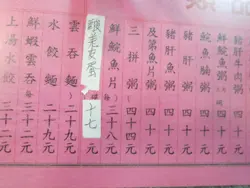 豬肝牛肉粥 四十元
鯇魚腩粥 四十元
豬肝魚粥 四十元
及第魚片粥 四十元
三拼粥 四十四元
鮮鯇魚片 三十八元
皮蛋 十七元
雲吞麵 二十九元
水餃麵 二十九元
鮮蝦雲吞 三十元
上湯水餃 三十二元